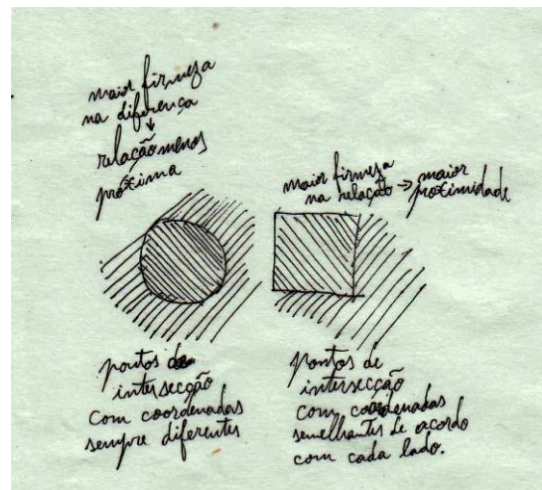 maior firmeza
na diferença
↓
relação menos
próxima
maior firmeza
na relação → maior
proximidade
pontos de
intersecção
com coordenadas
sempre diferentes
pontos de
intersecção
com coordenadas
semelhantes de acordo
com cada lado.